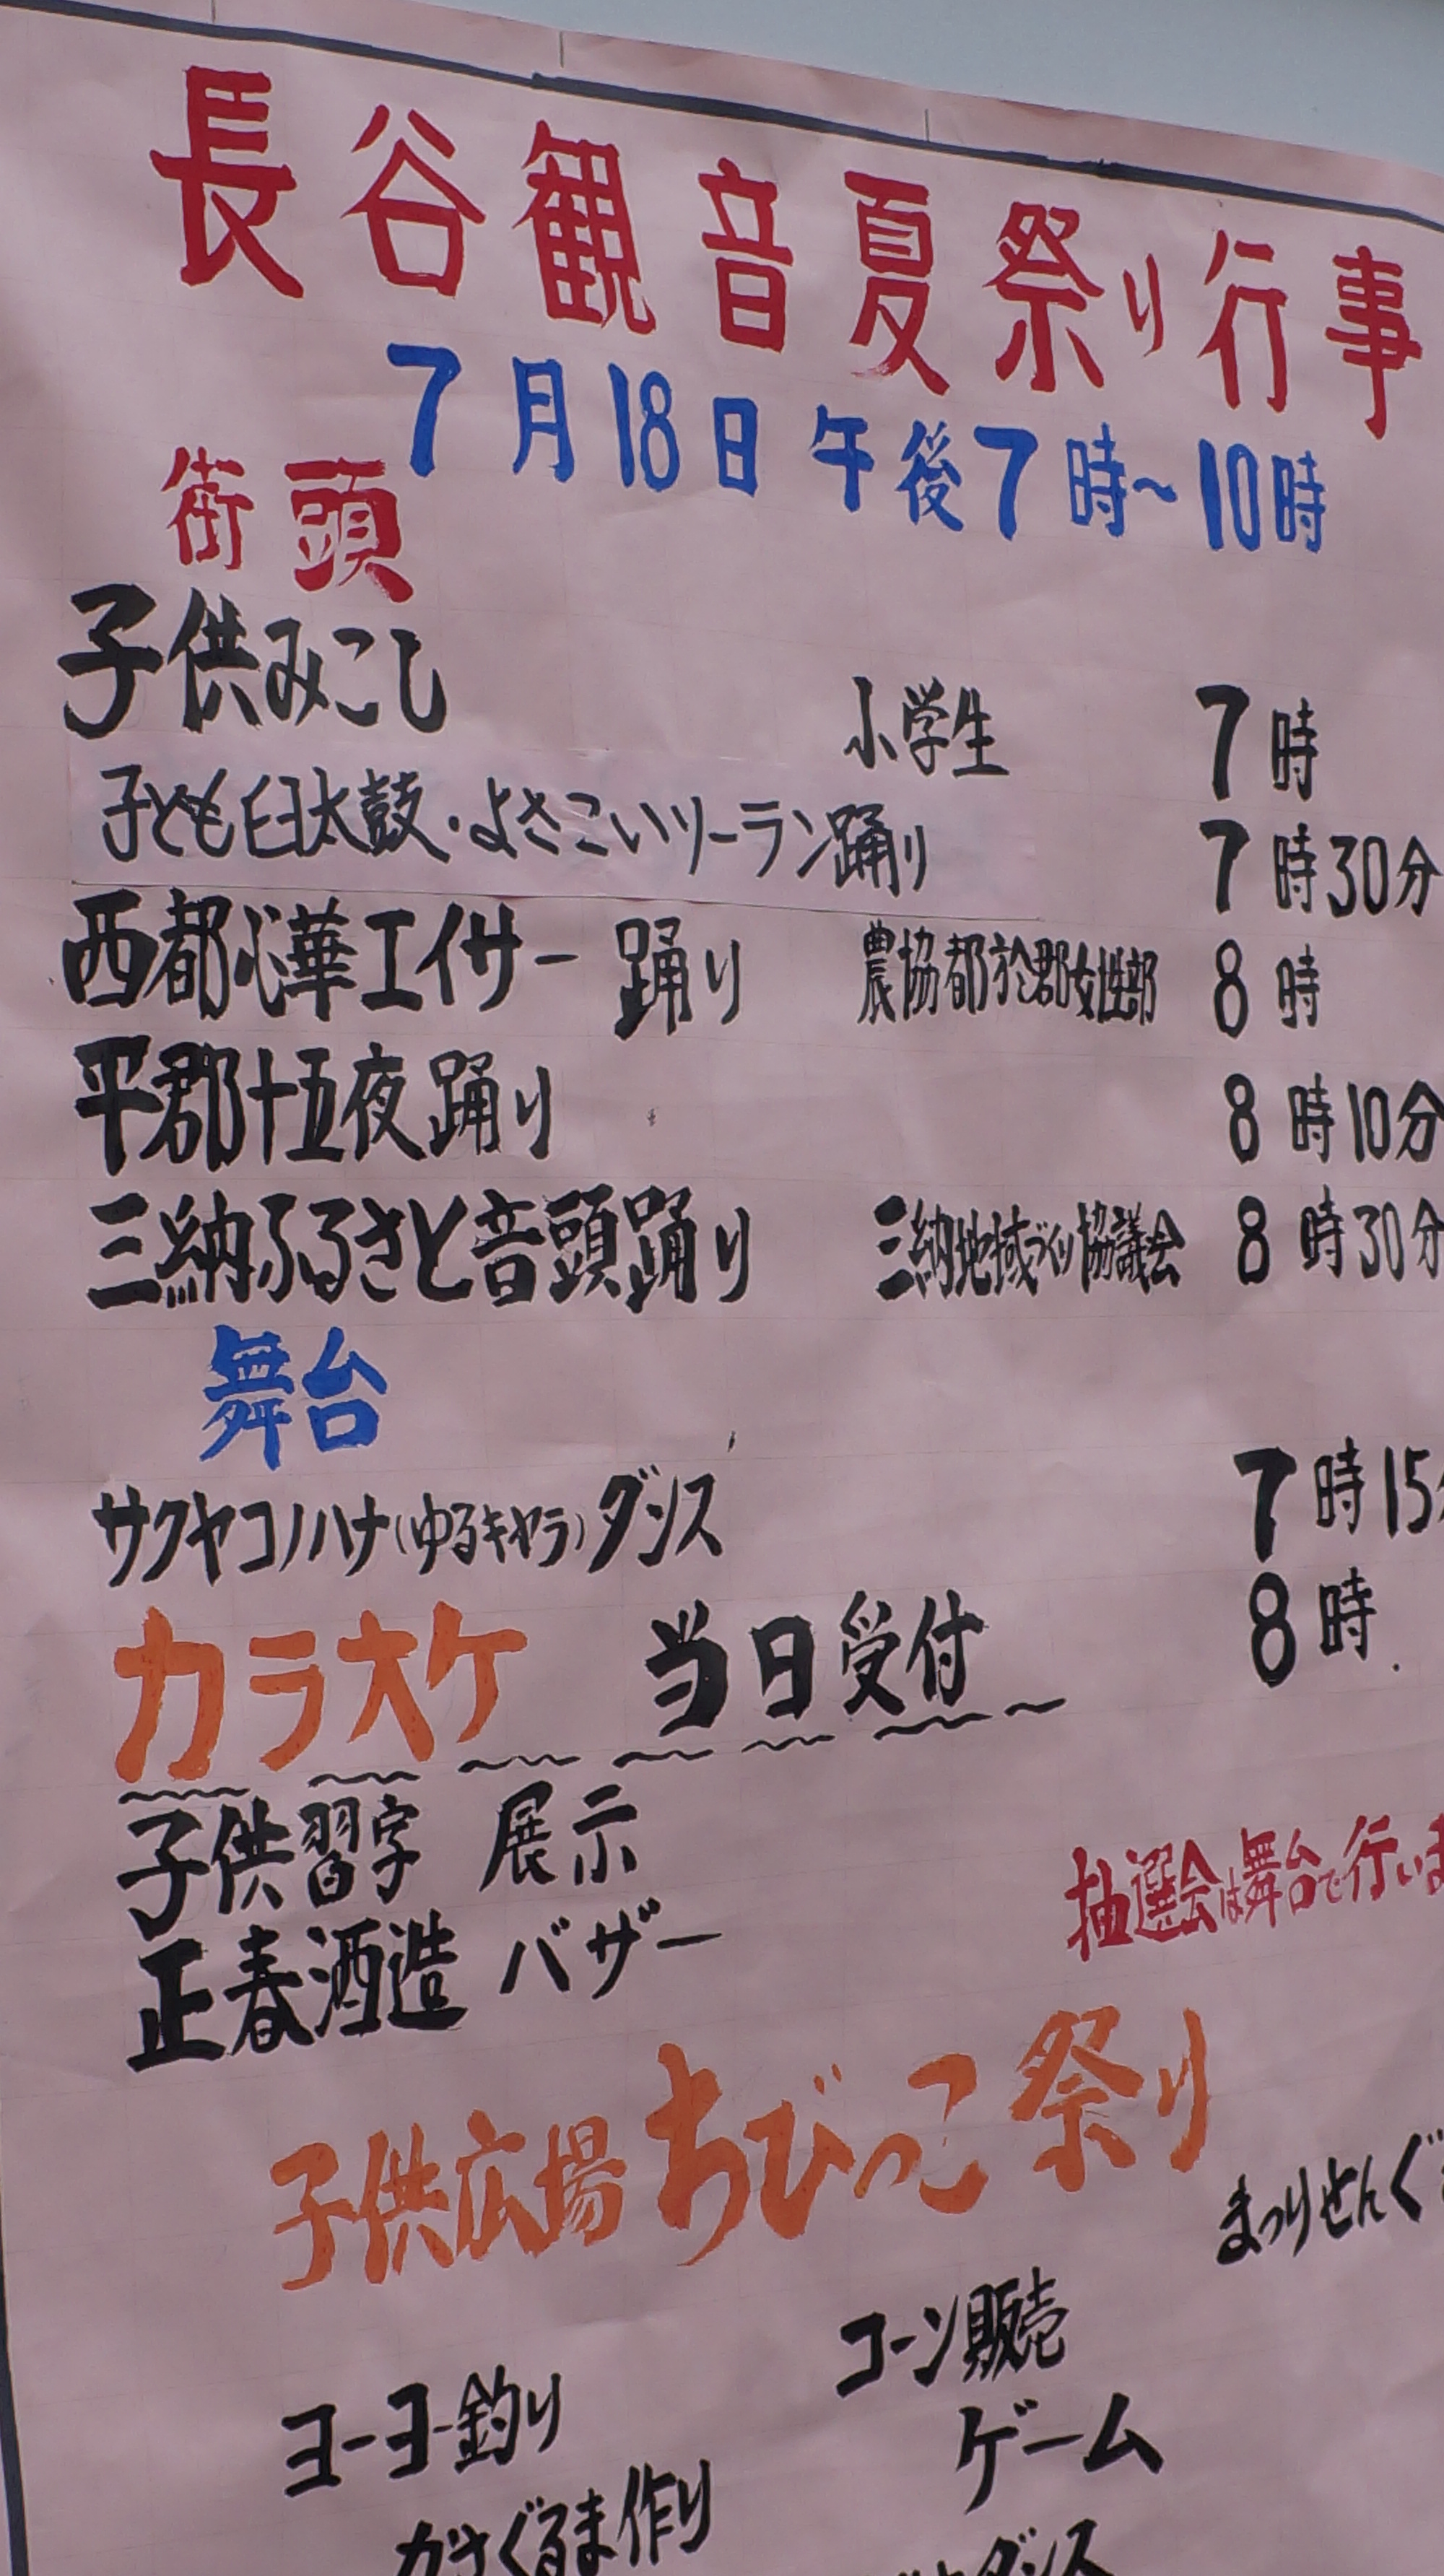 長谷観音夏祭り行事
7月18日 午後7時~10時
街頭
子供みこし 小学生 7時
子ども臼太鼓・よさこいソーラン踊り 7時30分
西都心華エイサー 踊り 農協都於郡女性部 8時
平郡十五夜踊り 8時10分
三納ふるさと音頭踊り 三納地域づくり協議会 8時30分
舞台
サクヤコノハナ(ゆるキャラ)ダンス 7時15
カラオケ 当日受付 8時
子供習字 展示
抽選会は舞台で行いま
正春酒造 バザー
子供広場 ちびっこ祭り
まつりせんぐ
コーン販売
ヨーヨー釣り ゲーム
かざぐるま作り
ダンス